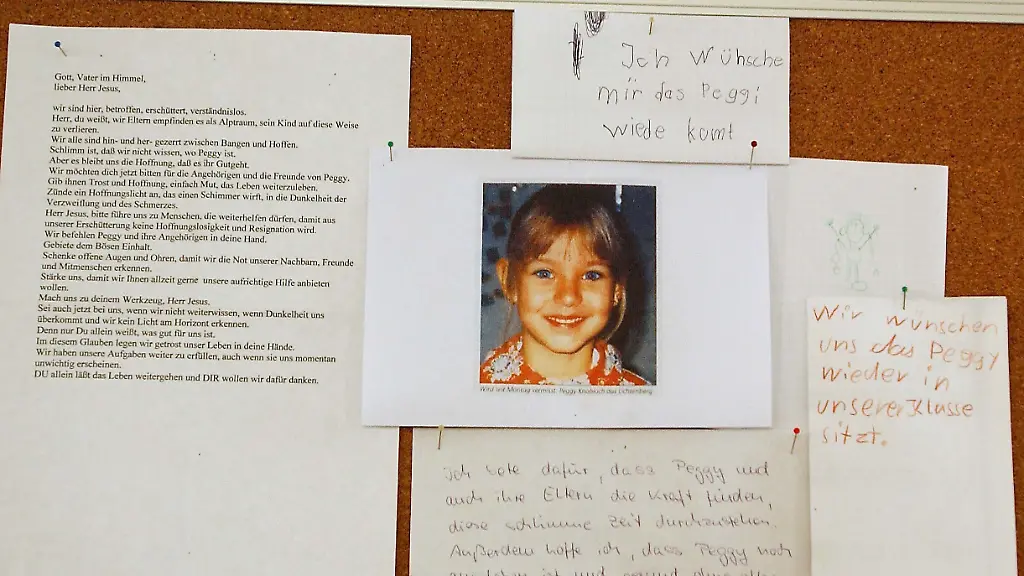 Gott, Vater im Himmel,
lieber Herr Jesus,
wir sind hier, betroffen, erschüttert, verständnislos.
Herr, du weißt, wir Eltern empfinden es als Alptraum, sein Kind auf diese Weise
zu verlieren.
Wir alle sind hin- und her- gezerrt zwischen Bangen und Hoffen.
Schlimm ist, daß wir nicht wissen, wo Peggy ist.
Aber es bleibt uns die Hoffnung, daß es ihr Gutgeht.
Wir möchten dich jetzt bitten für die Angehörigen und die Freunde von Peggy.
Gib ihnen Trost und Hoffnung, einfach Mut, das Leben weiterzuleben.
Zünde ein Hoffnungslicht an, das einen Schimmer wirft, in die Dunkelheit der
Verzweiflung und des Schmerzes.
Herr Jesus, bitte führe uns zu Menschen, die weiterhelfen dürfen, damit aus
unserer Erschütterung keine Hoffnungslosigkeit und Resignation wird.
Wir befehlen Peggy und ihre Angehörigen in deine Hand.
Gebiete dem Bösen Einhalt.
Schenke offene Augen und Ohren, damit wir die Not unserer Nachbarn, Freunde
und Mitmenschen erkennen.
Stärke uns, damit wir Ihnen allzeit gerne unsere aufrichtige Hilfe anbieten
wollen.
Mach uns zu deinem Werkzeug, Herr Jesus.
Sei auch jetzt bei uns, wenn wir nicht weiterwissen, wenn Dunkelheit uns
überkommt und wir kein Licht am Horizont erkennen.
Denn nur Du allein weißt, was gut für uns ist.
Im diesem Glauben legen wir getrost unser Leben in deine Hände.
Wir haben unsere Aufgaben weiter zu erfüllen, auch wenn sie uns momentan
unwichtig erscheinen.
DU allein läßt das Leben weitergehen und DIR wollen wir dafür danken.
Ich wühsche
mir das Peggi
wiede komt
Wird seit Montag vermisst: Peggy Knobloch aus Lichtenberg
Wir wünschen
uns das Peggy
wieder in
unserer Klasse
sitzt.
Ich bete dafür, dass Peggy und
auch ihre Eltern die Kraft finden,
diese schlimme Zeit durchzustehen.
Außerdem hoffe ich, dass Peggy noch
am Leben ist und gesund ohne